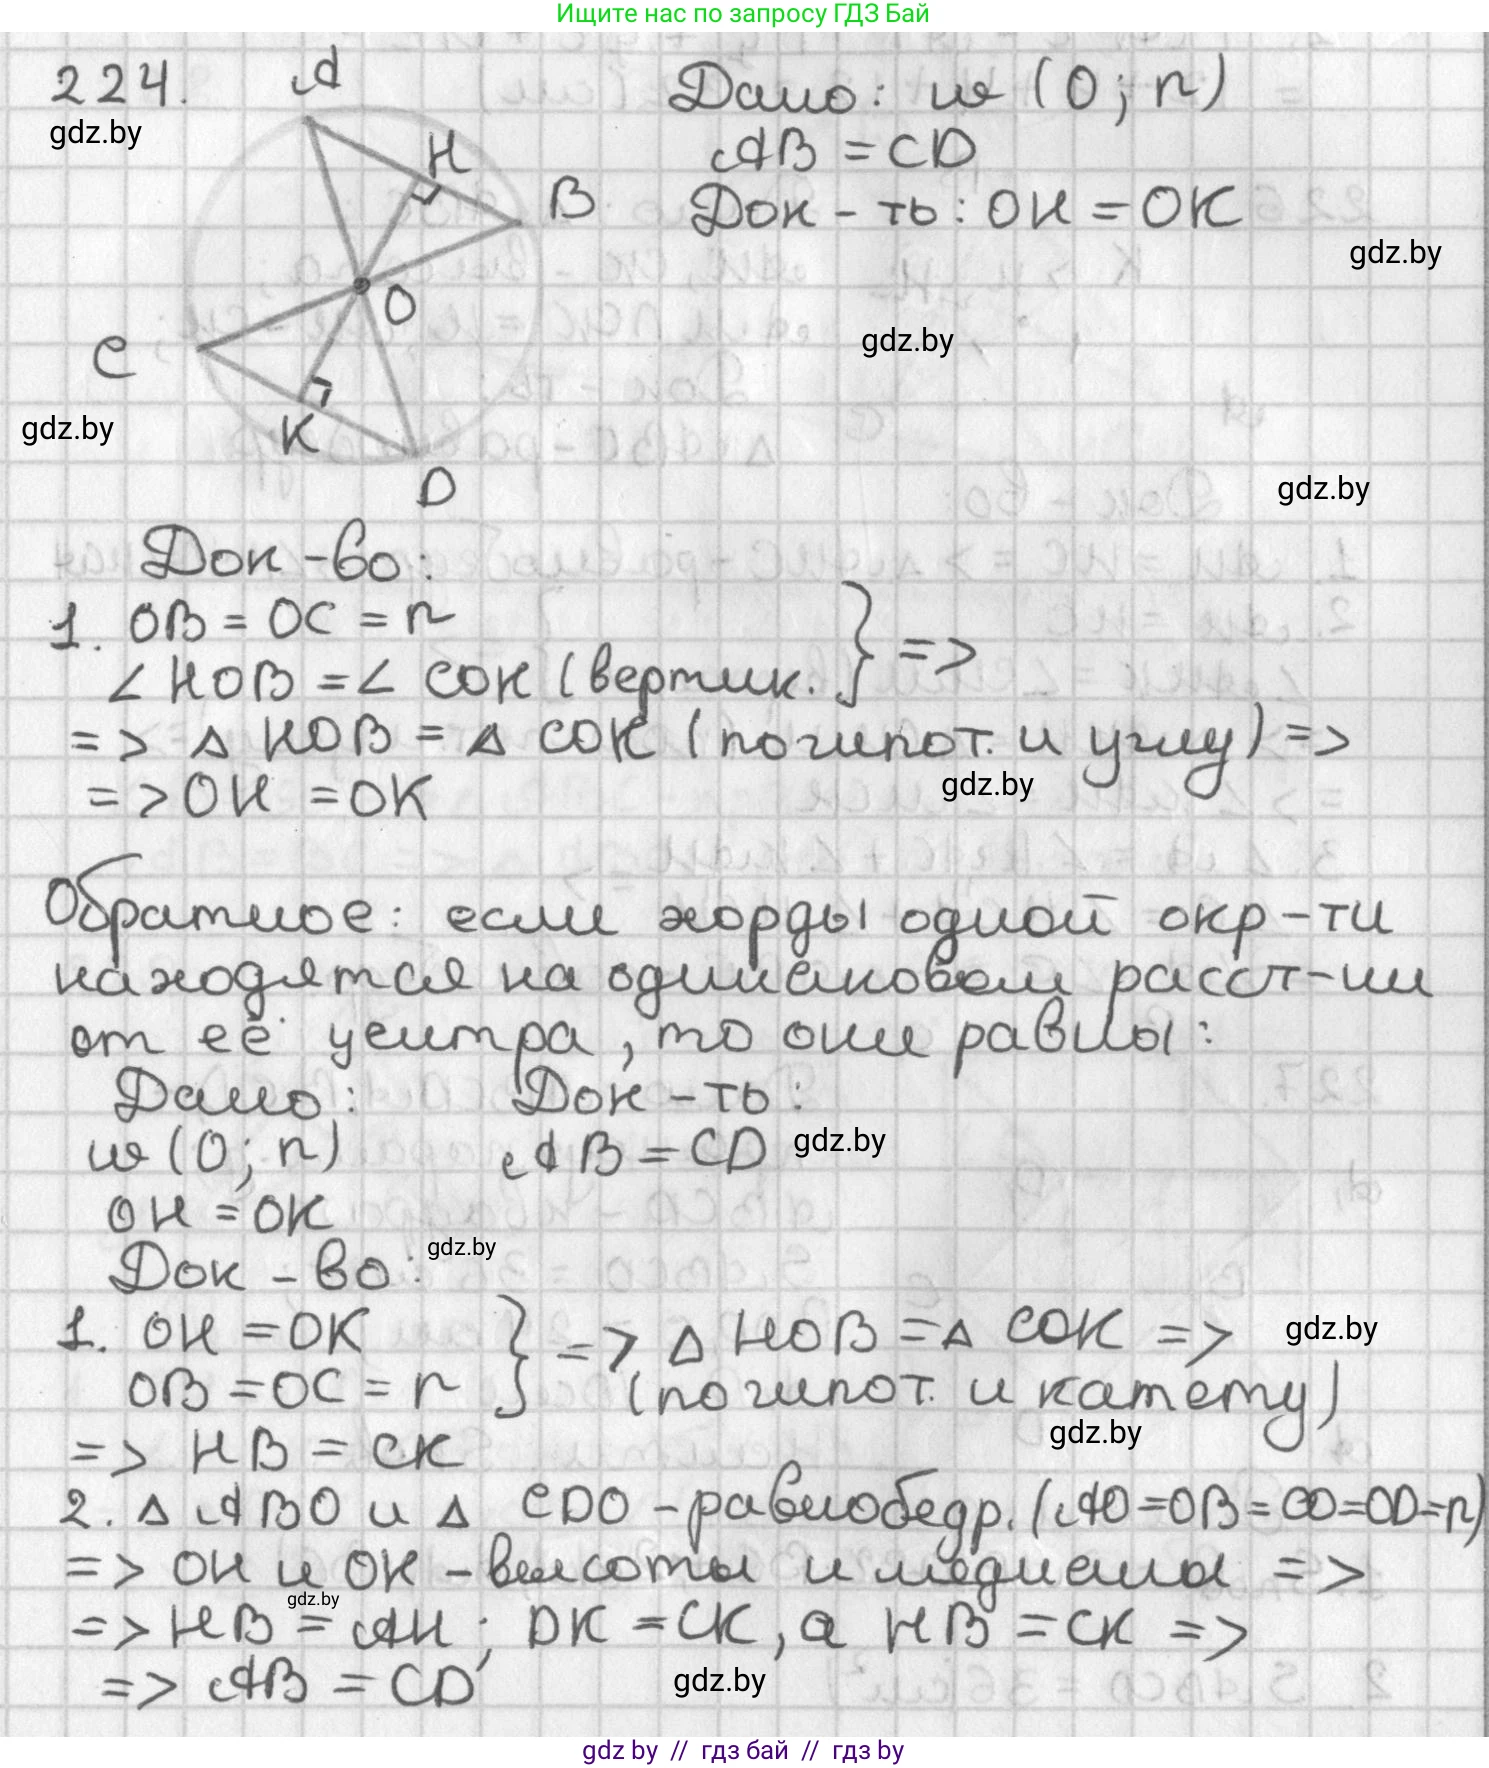 Ищите нас по запросу ГДЗ Бай
224.
A
Дано: w (O; r)
gdz.by
H
AB = CD
B
Док - ть: OH = OK
gdz.by
O
gdz.by
C
gdz.by
K
D
gdz.by
Док - во:
1. OB = OC = r
∠ HOB = ∠ COK (вертик. } =>
=> △ HOB = △ COK (по гипот. и углу) =>
gdz.by
=> OH = OK
Обратное: если хорды одной окр - ти
находятся на одинаковом расст - нии
от её центра, то они равны:
Дано: Док - ть:
w (O; r) AB = CD gdz.by
OH = OK
Док - во: gdz.by
1. OH = OK } => △ HOB = △ COK => gdz.by
OB = OC = r (по гипот. и катету)
gdz.by
=> HB = CK
2. △ ABO и △ CDO - равнобедр. (AO = OB = CO = OD = r)
=> OH и OK - высоты и медианы =>
gdz.by
=> HB = AH; DK = CK, а HB = CK =>
=> AB = CD gdz.by
gdz by // гдз бай // гдз by